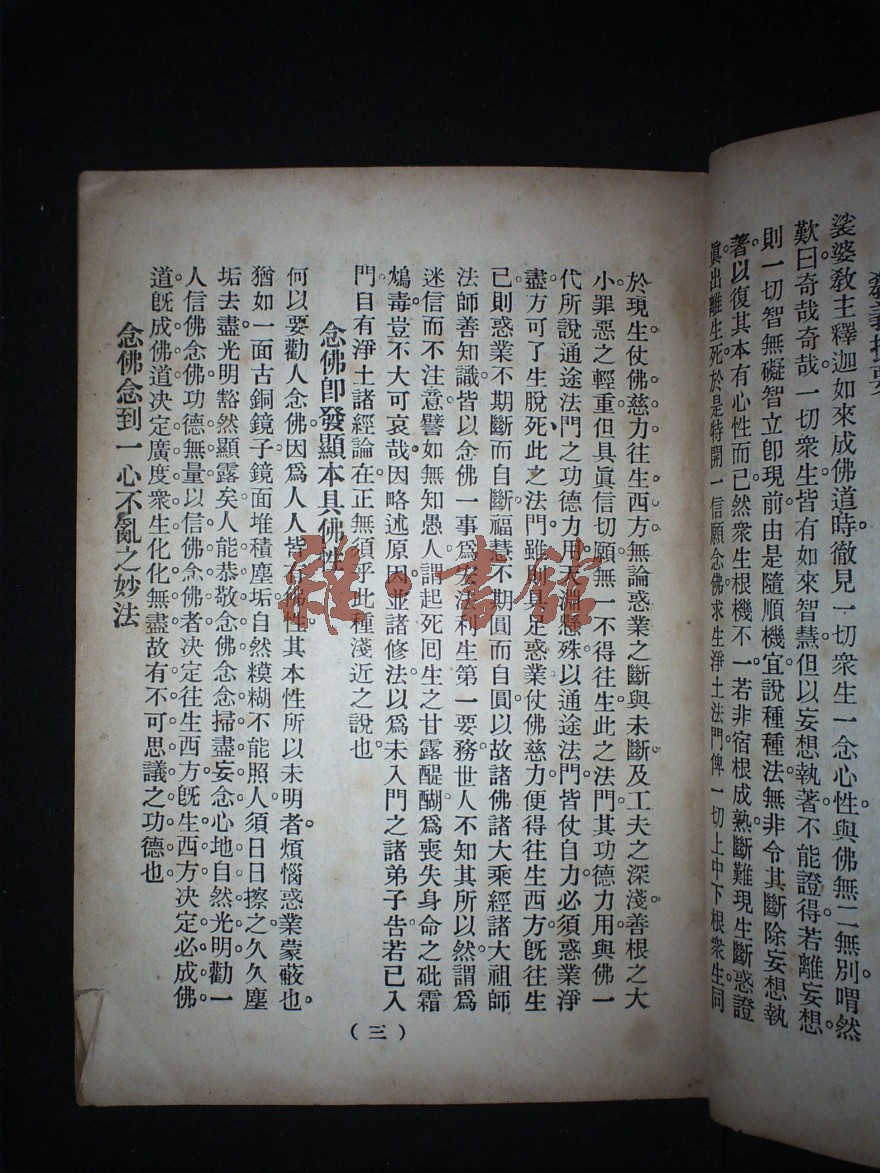 娑婆敎主釋迦如來成佛道時。徹見一切衆生一念心性。與佛無二無別。喟然
歎曰。奇哉奇哉。一切衆生。皆有如來智慧。但以妄想執著。不能證得。若離妄想。
則一切智。無礙智。立卽現前。由是隨順機宜。說種種法。無非令其斷除妄想執
著。以復其本有心性而已。然衆生根機不一。若非宿根成熟。斷難現生斷惑證
眞。出離生死。於是特開一信願念佛求生淨土法門。俾一切上中下根衆生。同
於現生。仗佛慈力。往生西方。無論惑業之斷與未斷。及工夫之深淺。善根之大
小。罪惡之輕重。但具眞信切願。無一不得往生。此之法門。其功德力用。與佛一
代所說通途法門之功德力用。天淵懸殊。以通途法門。皆仗自力。必須惑業淨
盡。方可了生脫死。此之法門。雖則具足惑業。仗佛慈力。便得往生西方。旣往生
已。則惑業不期斷而自斷。福慧不期圓而自圓。以故諸佛諸大乘經。諸大祖師
法師善知識。皆以念佛一事。爲宏法利生第一要務。世人不知其所以然。謂爲
迷信。而不注意。譬如無知愚人。謂起死回生之甘露醍醐。爲喪失身命之砒霜
鴆毒。豈不大可哀哉。因略述原因。並諸修法。以爲未入門之諸弟子吿。若已入
門。自有淨土諸經論在。正無須乎此種淺近之說也。
念佛卽發顯本具佛性
何以要勸人念佛。因爲人人皆有佛性。其本性所以未明者。煩惱惑業蒙蔽也。
猶如一面古銅鏡子。鏡面堆積塵垢。自然糢糊。不能照人。須日日擦之。久久塵
垢去盡。光明豁然顯露矣。人能恭敬念佛。念念掃盡妄念。心地自然光明。勸一
人信佛念佛。功德無量。以信佛念佛者。決定往生西方。旣生西方。決定必成佛
道。旣成佛道。決定廣度衆生。化化無盡。故有不可思議之功德也。
念佛念到一心不亂之妙法
（三）
雜·書館